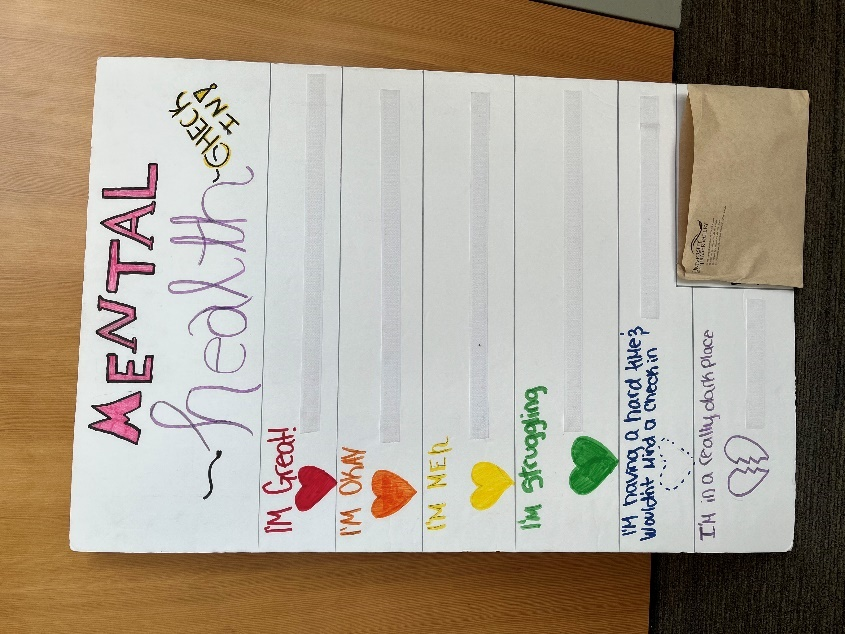 MENTAL
health
CHECK
IN!
I'M Great!
I'M OKAY
I'M MEH
I'm struggling
I'M having a hard time &
Wouldnt Mind a Check in
I'M in a really dark place